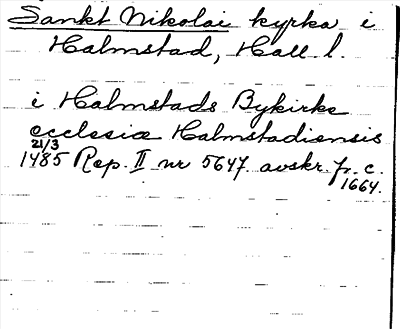 Sankt Nikolai kyrka i
Halmstad, Hall l.
i Halmstads Bykirke
ecclesia Halmstadiensis
21/3
1485 Rep. II nr 5647 avskr. fr. c.
1664.